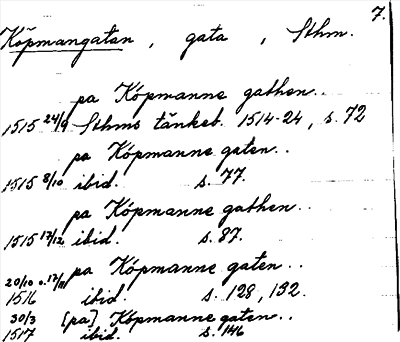 7.
Köpmangatan, gata, Sthm.
pa Köpmanne gathen..
1515 24/9 Sthms tänkeb. 1514-24, s. 72
pa Köpmanne gaten..
1515 8/10 ibid. s. 77.
pa Köpmanne gathen..
1515 17/12 ibid. s. 87.
pa Köpmanne gaten..
20/10 o. 17/11
1516 ibid. s. 128, 132.
30/3 [pa] Köpmanne gaten..
1517 ibid. s. 146